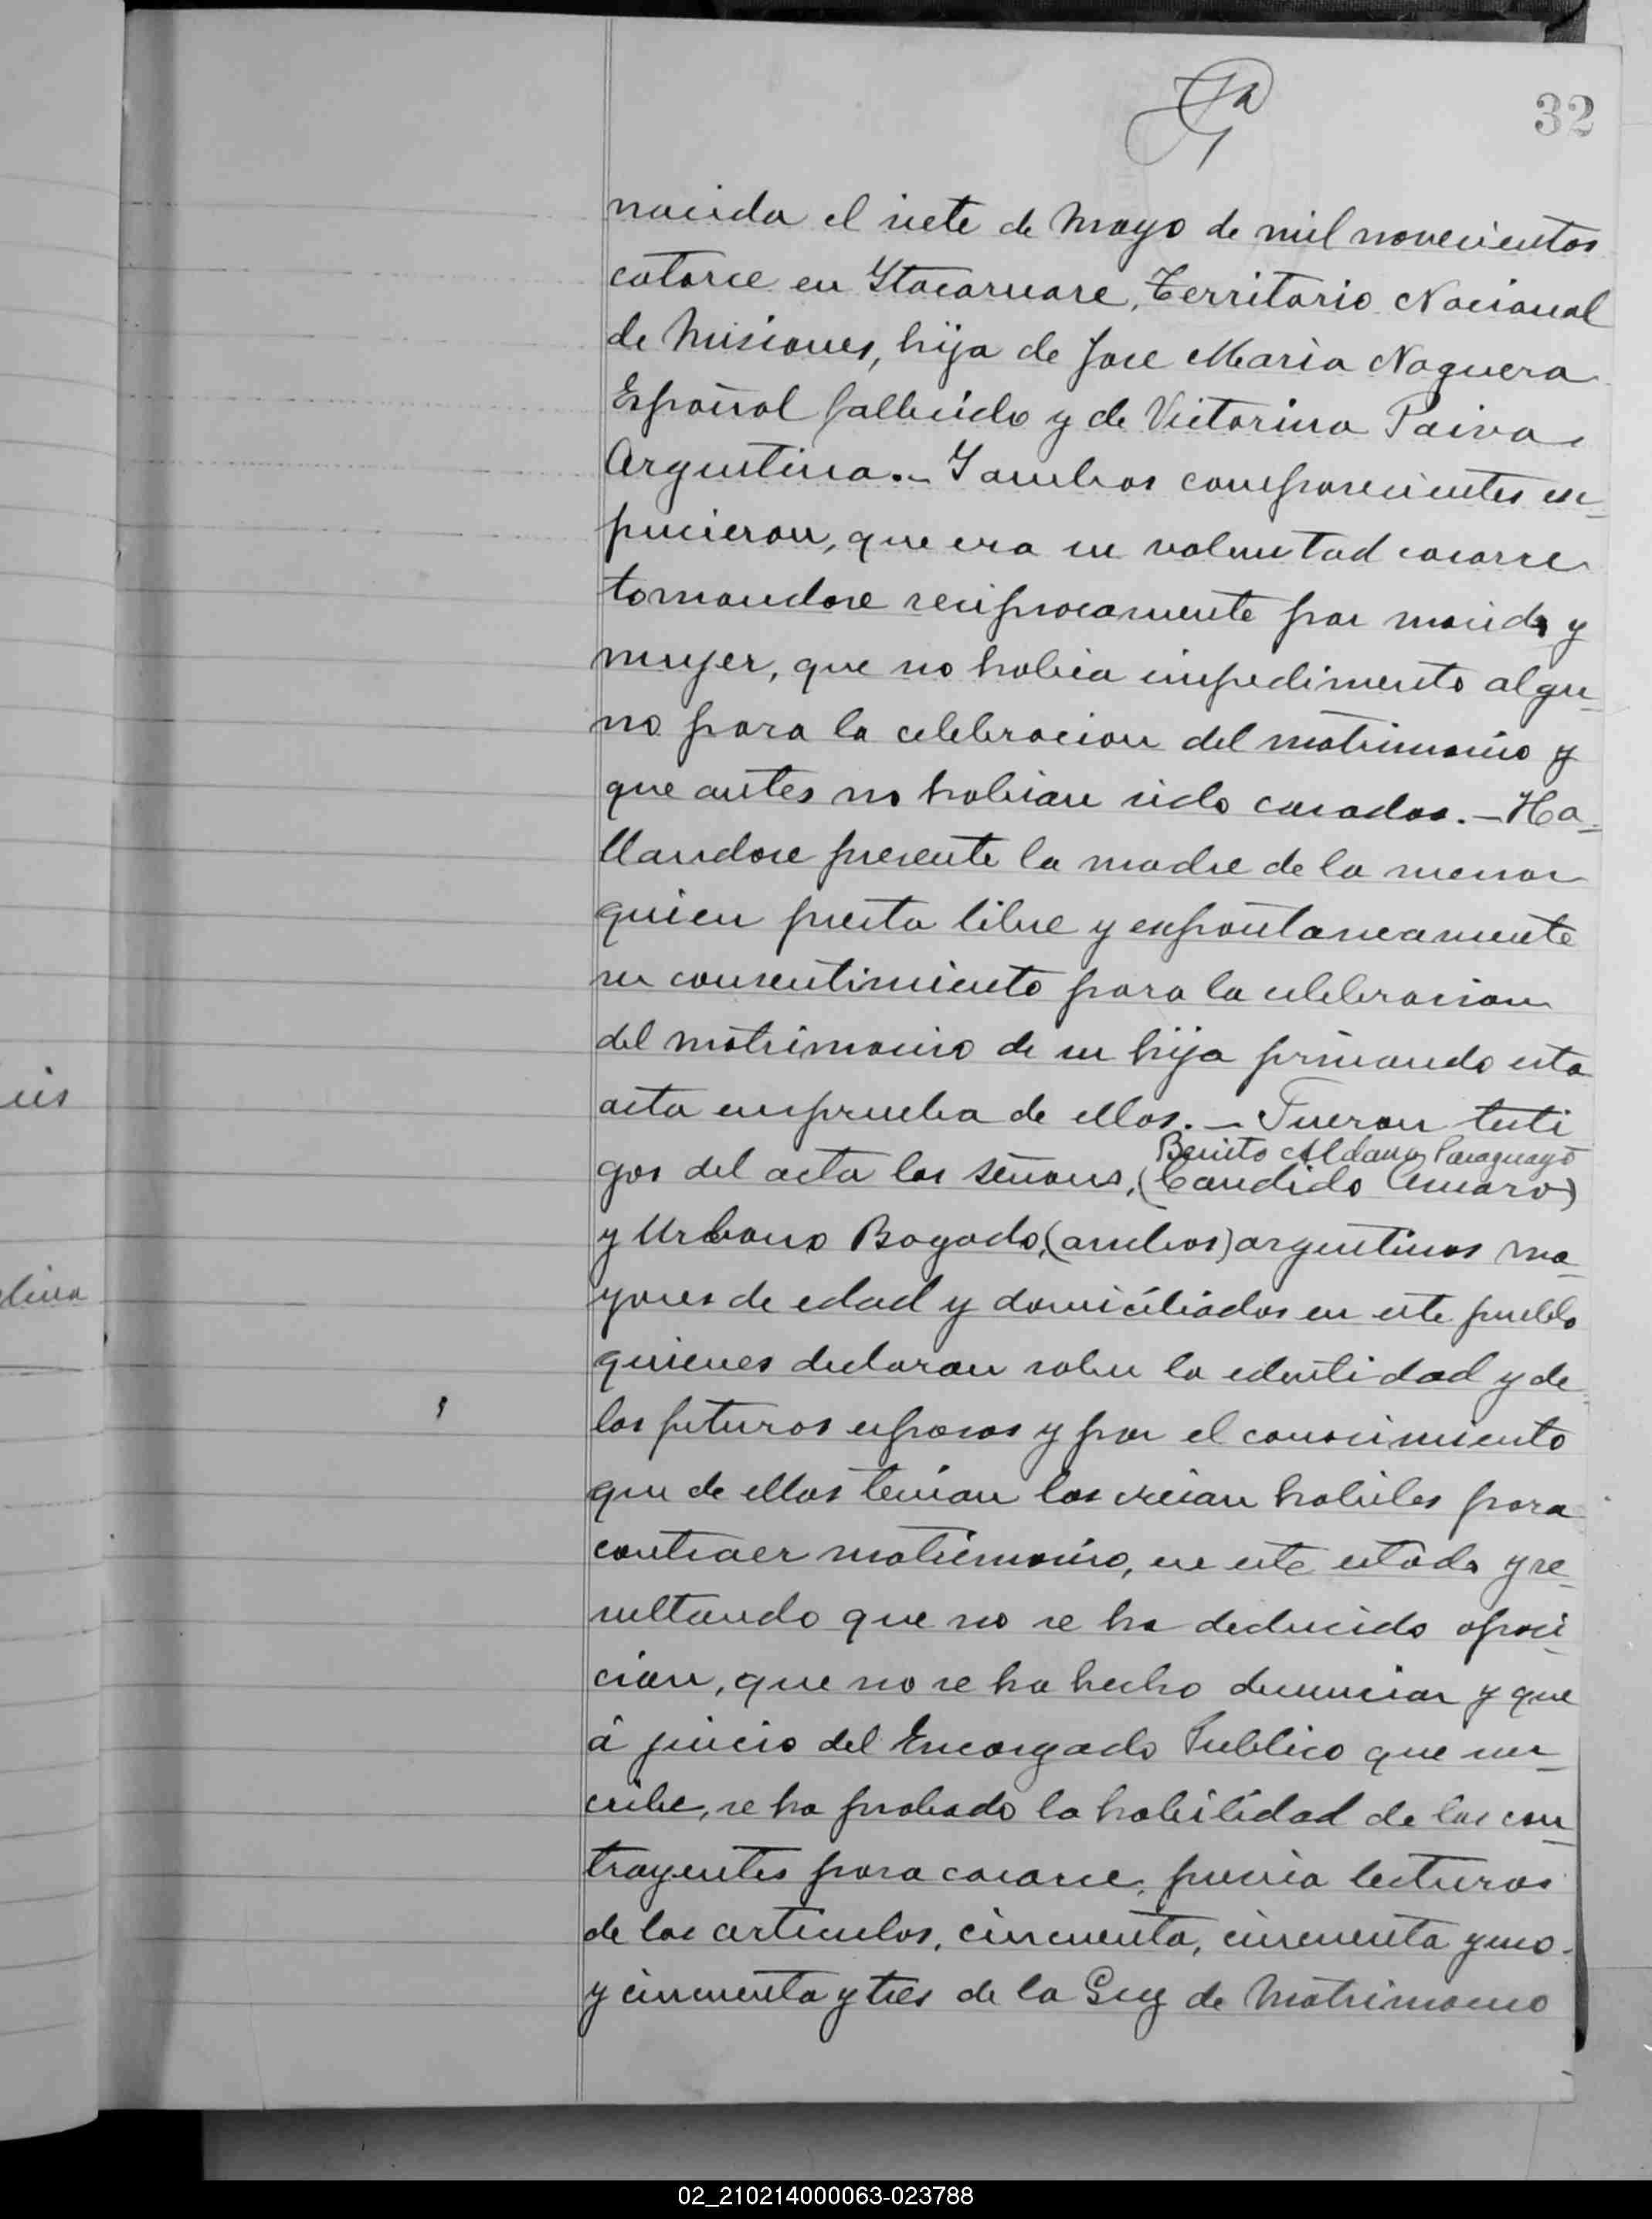 32
nacida el siete de Mayo de mil novecientos
catorce en Ytacaruare, Territorio Nacional
de Misiones, hija de Jose Maria Noguera
Español fallecido y de Victorina Paiva
Argentina.- Y ambos comparecientes ex-
pucieron, que era su voluntad casarse
tomandose reciprocamente por marido y
mujer, que no habia impedimento algu-
no para la celebracion del matrimonio y
que antes no habian sido casados.- Ha-
llandose presente la madre de la menor
quien presta libre y espontaneamente
su consentimiento para la celebracion
del matrimonio de su hija firmando esta
acta en prueba de ellos.- Fueron testi
Benito Aldana Paraguayo
gos del acta los señores, (Candido Amaro)
y Urbano Bogado, (ambos) argentinos ma-
yores de edad y domiciliados en este pueblo
quienes declaran sobre la edentidad y de
los futuros esposos y por el conocimiento
que de ellos tenian los creian habiles para
contraer matrimonio, en este estado y re-
sultando que no se ha deducido oposi-
cion, que no se ha hecho denuncias y que
á juicio del Encargado Publico que sus-
cribe, se ha probado la habilidad de los con-
trayentes para casarse, previa lecturas
de los articulos, cincuenta, cincuenta y uno
y cincuenta y tres de la Ley de Matrimonio
is
lina
02_210214000063-023788